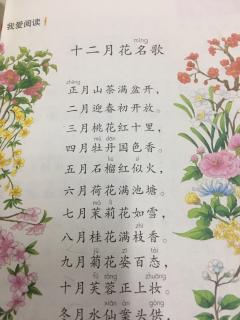 我爱阅读
十二月花名歌
正月山茶满盆开，
二月迎春初开放。
三月桃花红十里，
四月牡丹国色香。
五月石榴红似火，
六月荷花满池塘。
七月茉莉花如雪，
八月桂花满枝香。
九月菊花姿百态，
十月芙蓉正上妆。
冬月水仙案头供，